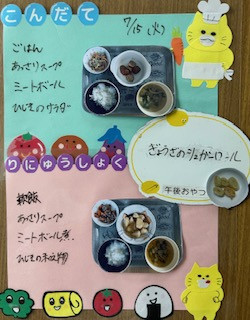 こんだて
7/15 (火)
ごはん
あさりスープ
ミートボール
ひじきのサラダ
ぎょうざのジャムロール
午後おやつ
りにゅうしょく
軟飯
あさりスープ
ミートボール煮
ひじきの和え物